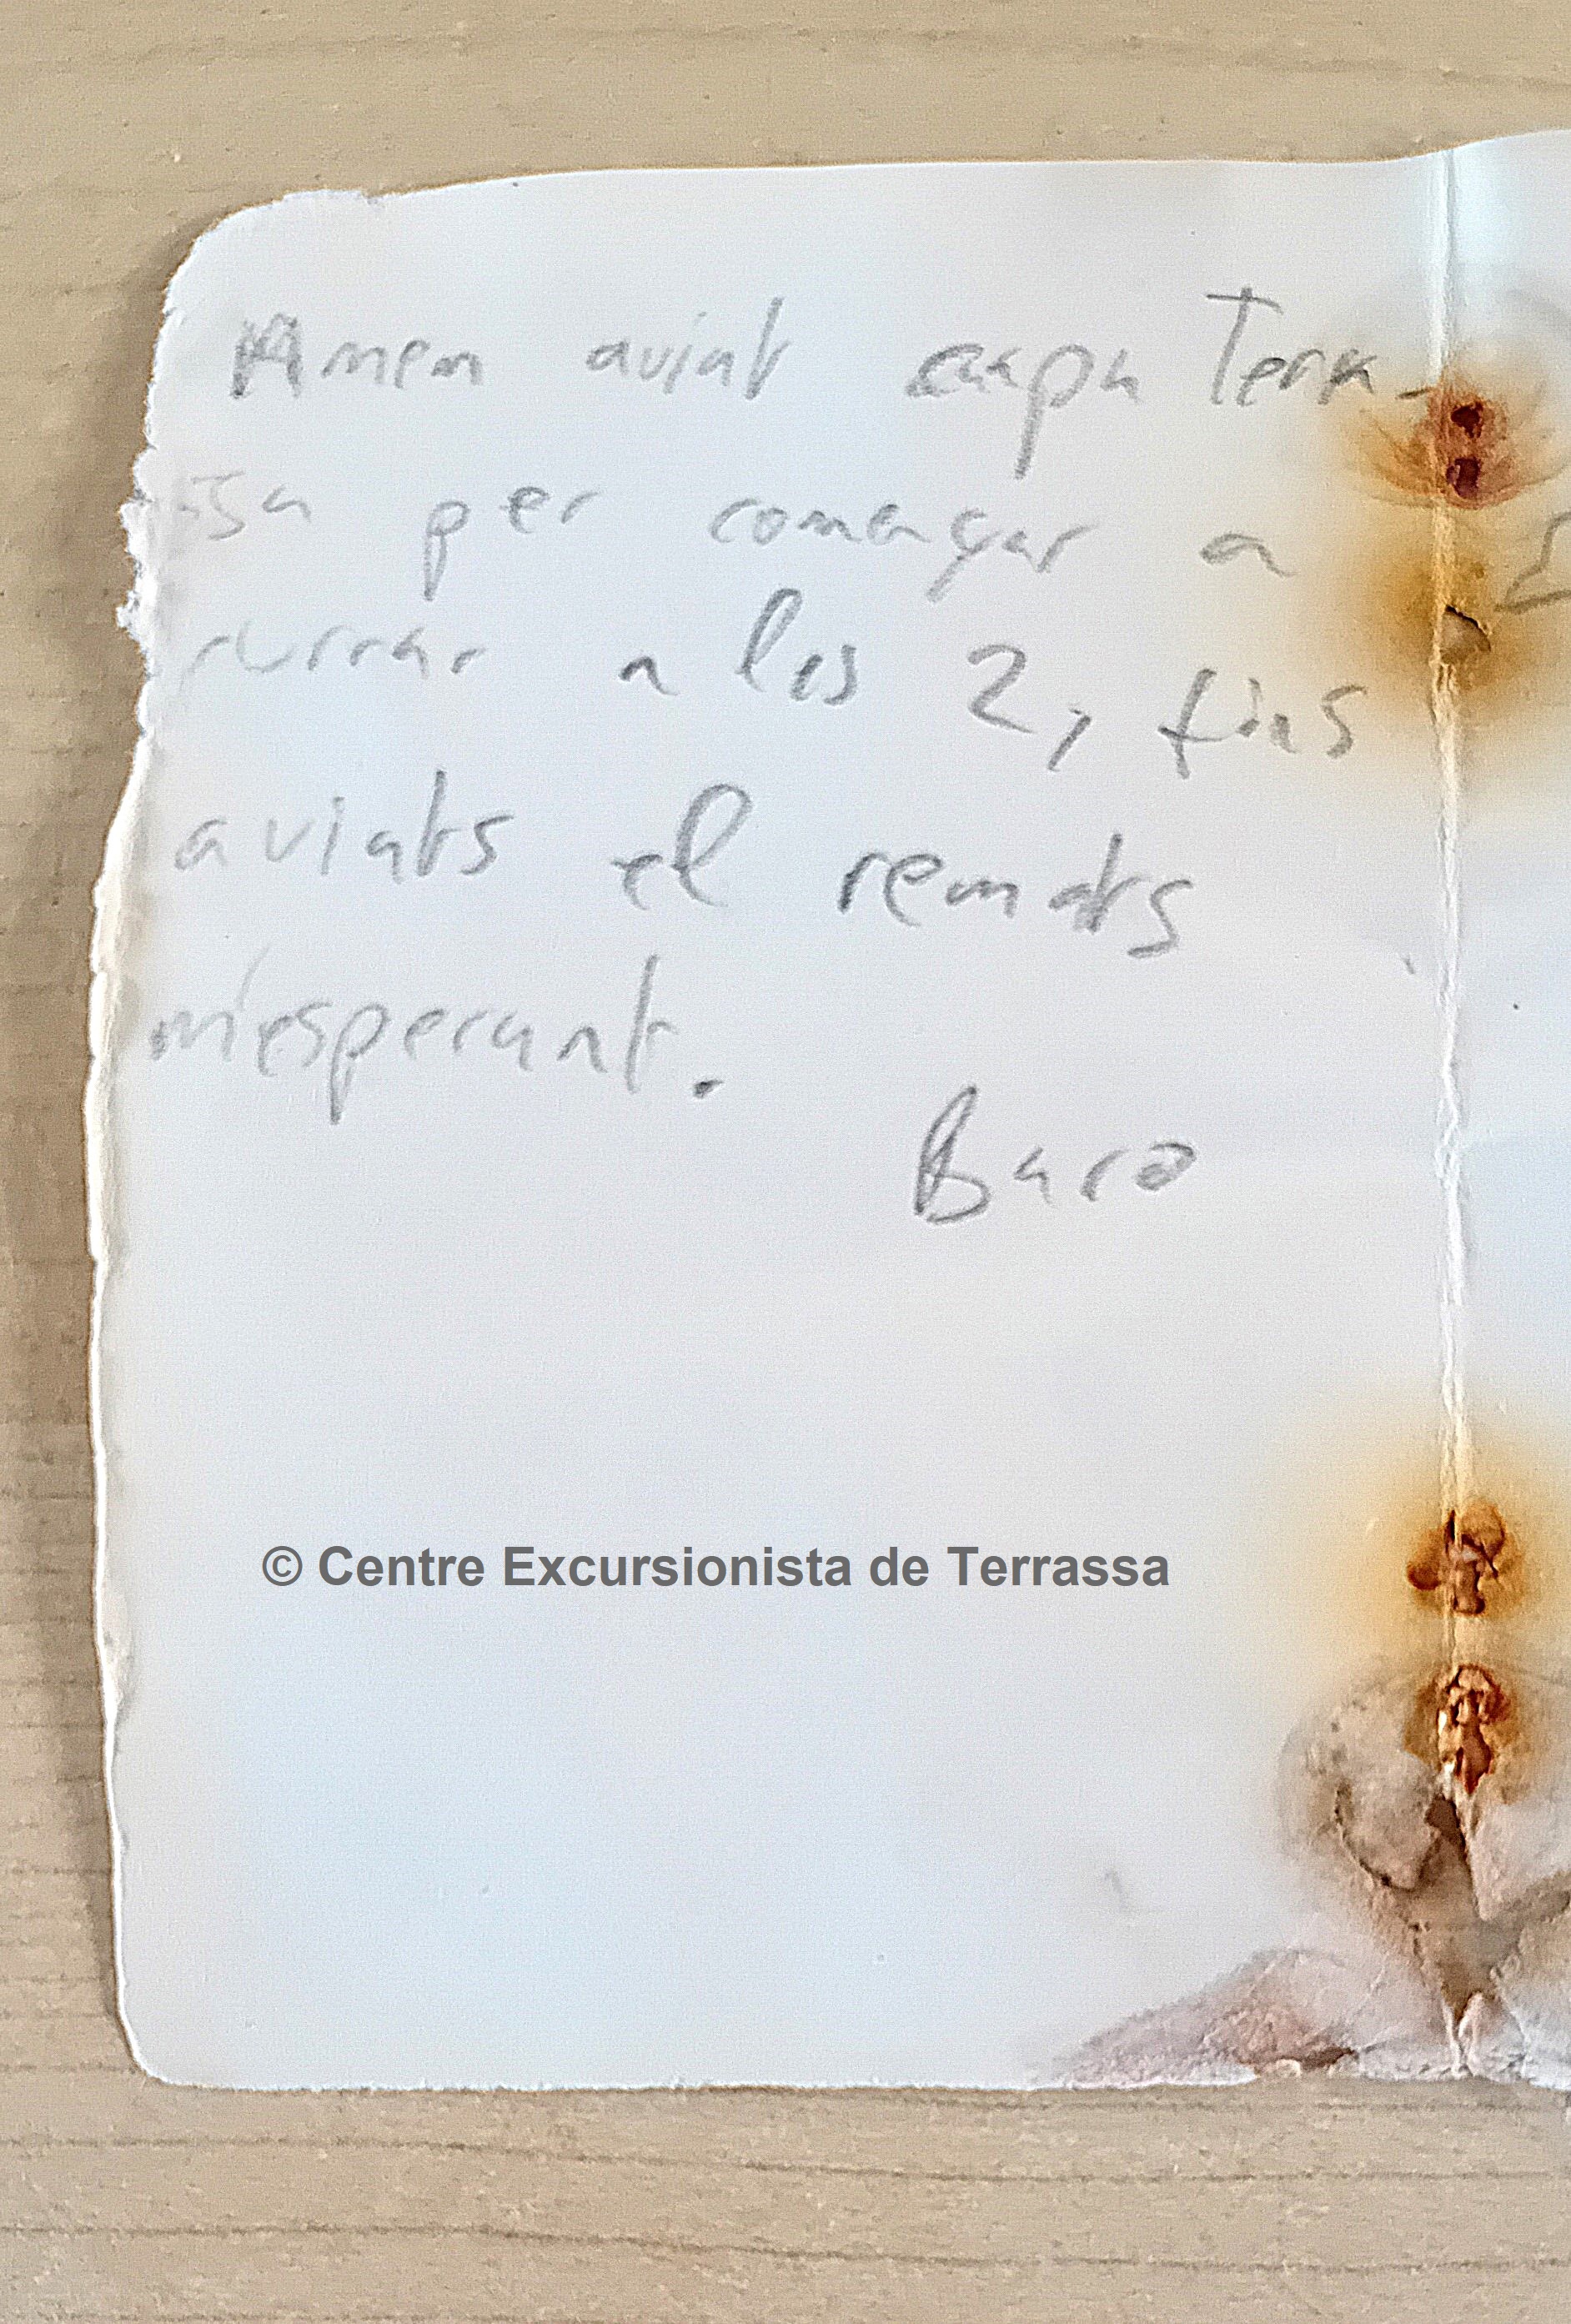 Anem aviat capa Terra-
ssa per començar a
currar a les 2, fins
aviats el remats
m'esperant.
Baro
© Centre Excursionista de Terrassa